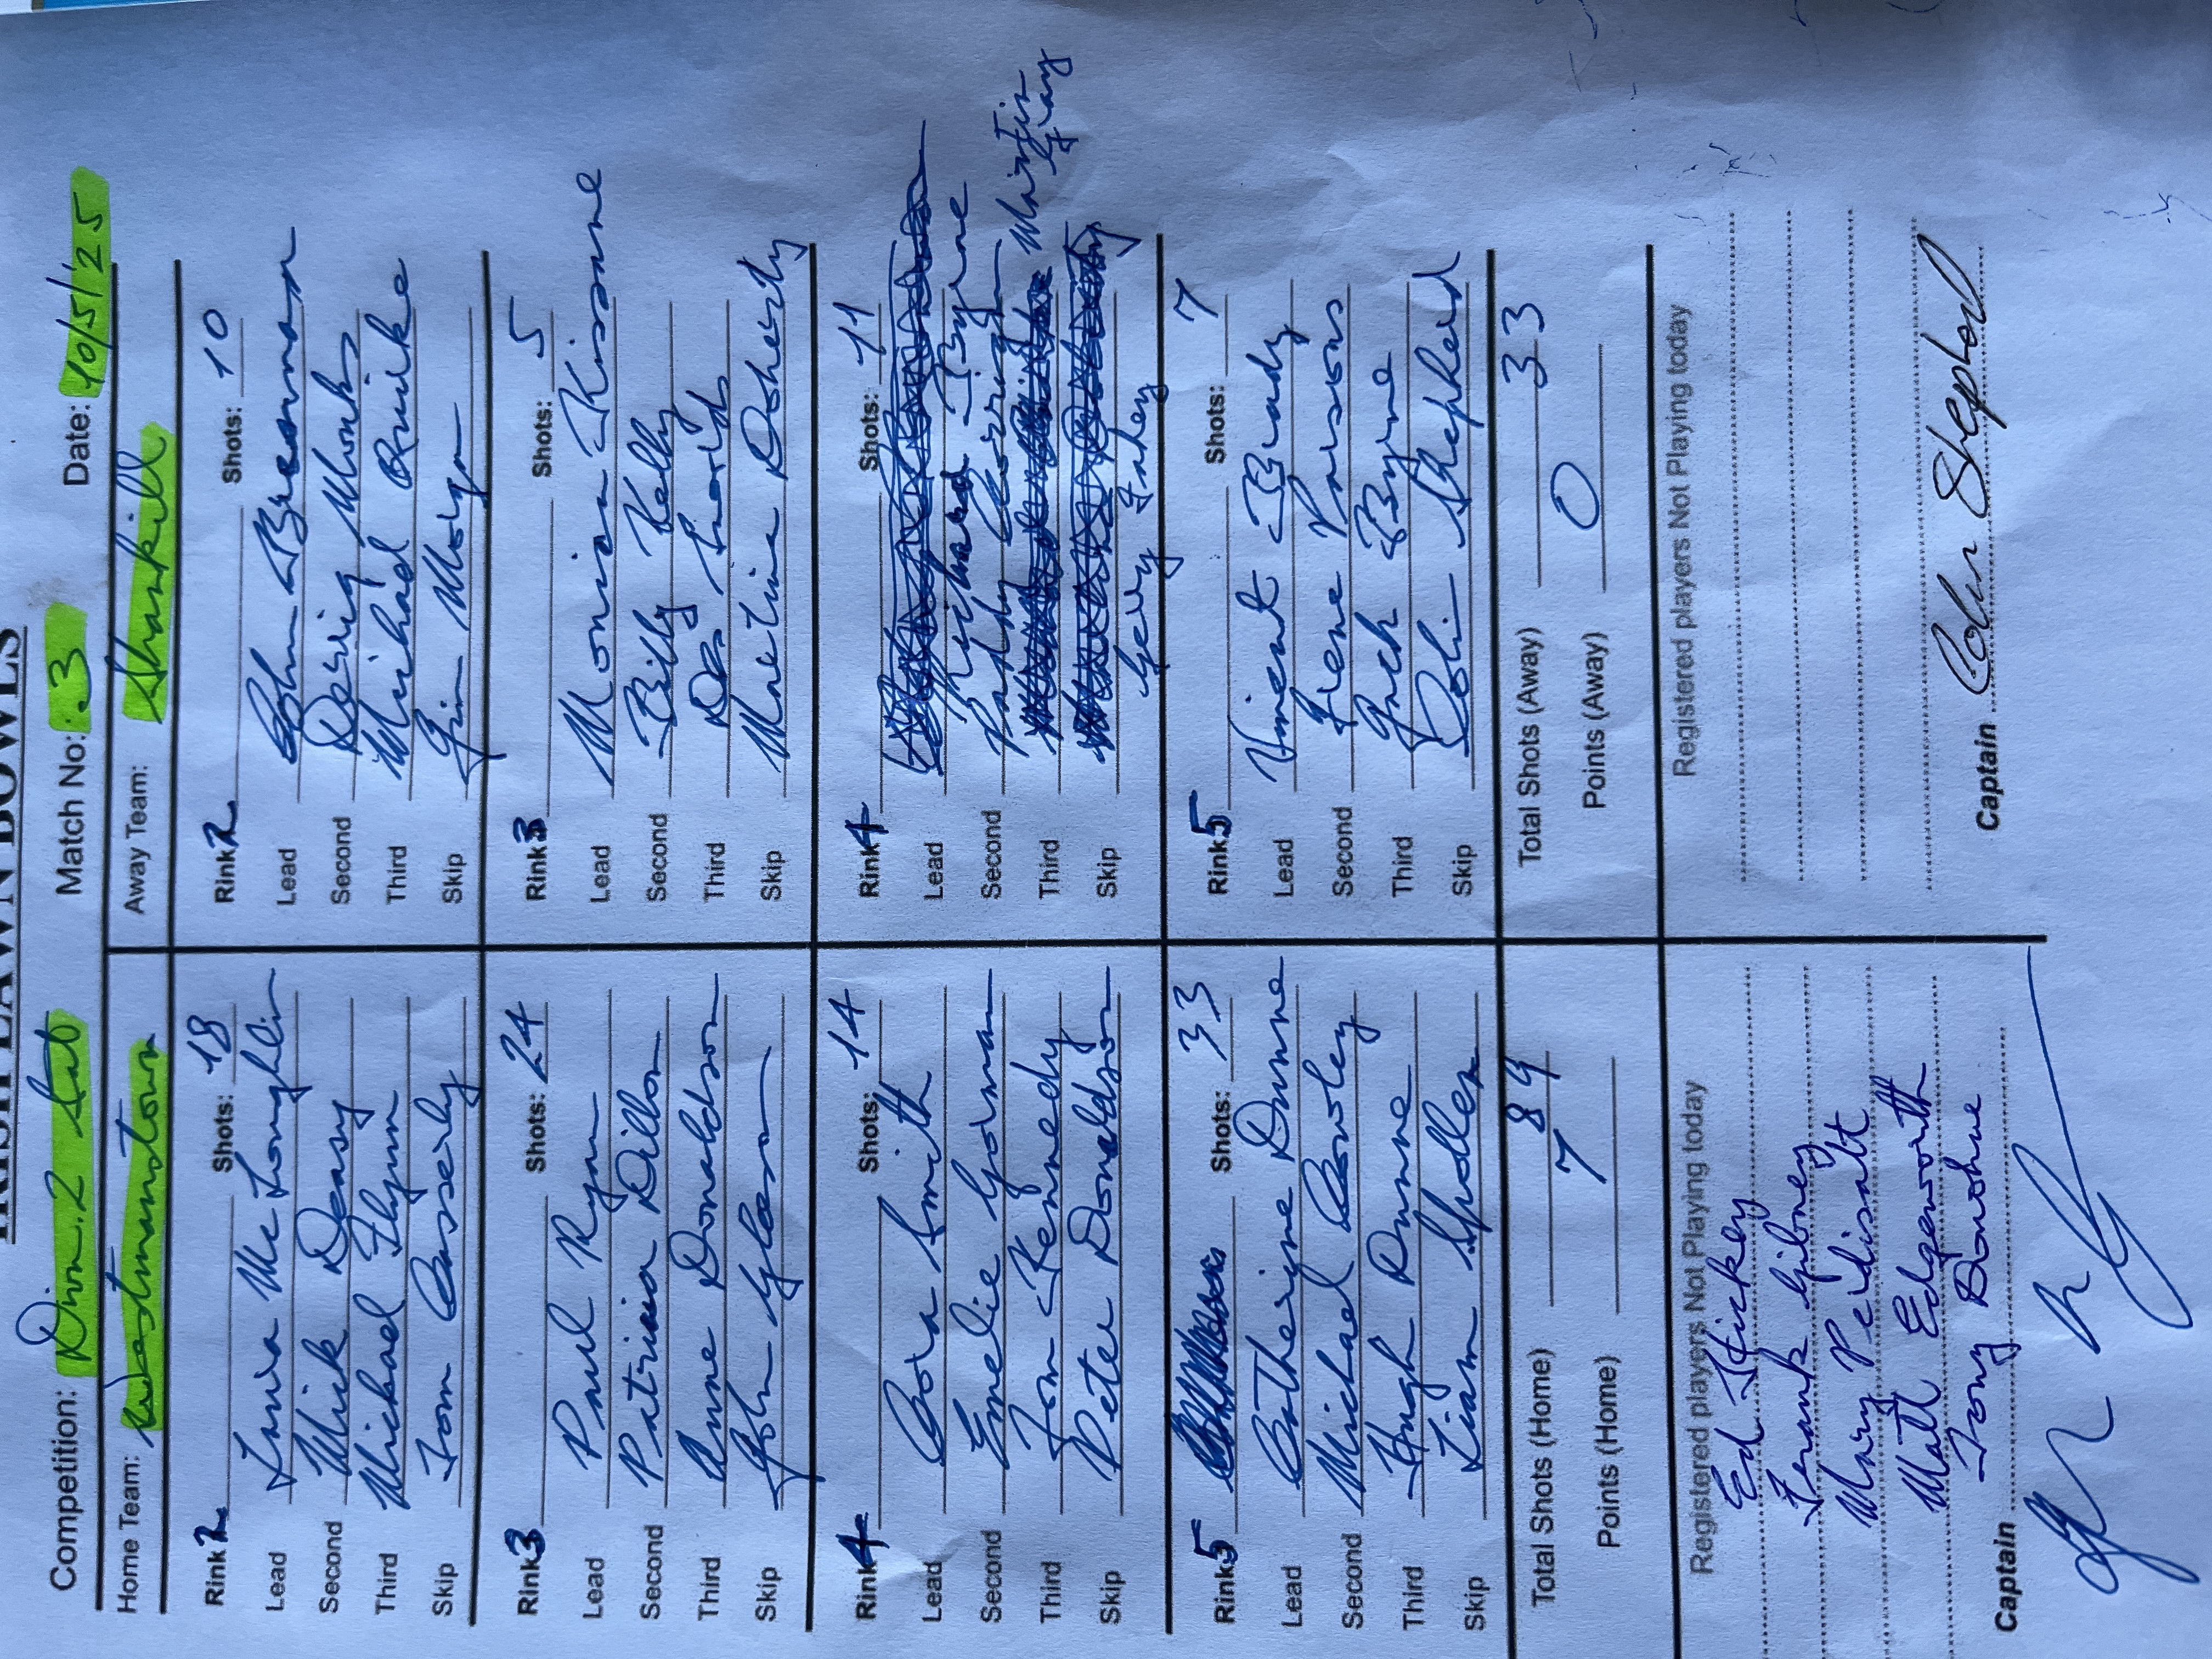 IRISH LAWN BOWLS
Competition: Divn. 2 Sat Match No: 3 Date: 10/5/25
Home Team: Westmanstown Away Team: Shankill
Rink 2 Shots: 18 Rink 2 Shots: 10
Lead Luwa Mc Loughlin Lead John Bresnnan
Second Mick Deasy Second Derig Monks
Third Michael Flynn Third Michael Quirke
Skip Tom Casserly Skip Jim Morgan
Rink 3 Shots: 24 Rink 3 Shots: 5
Lead Paul Ryan Lead Monica Kissane
Second Patricia Dillon Second Billy Kelly
Third Anne Donaldson Third Des
Skip John Gleeson Skip Martina Doherty
Rink 4 Shots: 14 Rink 4 Shots: 11
Lead Cora Smith Lead Richard Byrne
Second Emelie Gorman Second Paddy Corrigan
Third Tom Kennedy Third Martin Gray
Skip Peter Donaldson Skip Gerry Fahey
Rink 5 Shots: 33 Rink 5 Shots: 7
Lead Catherine Dunne Lead Vincent Brady
Second Michael Cowley Second Irene Parsons
Third Hugh Dunne Third Jack Byrne
Skip Liam Spollen Skip Colin Shepherd
Total Shots (Home) 89 Total Shots (Away) 33
Points (Home) 7 Points (Away) 0
Registered players Not Playing today Registered players Not Playing today
Ed Hickey
Frank Gibney
Mary Peidisalt
Matt Edgeworth
Tony Donohue
Captain Captain Colin Shepherd